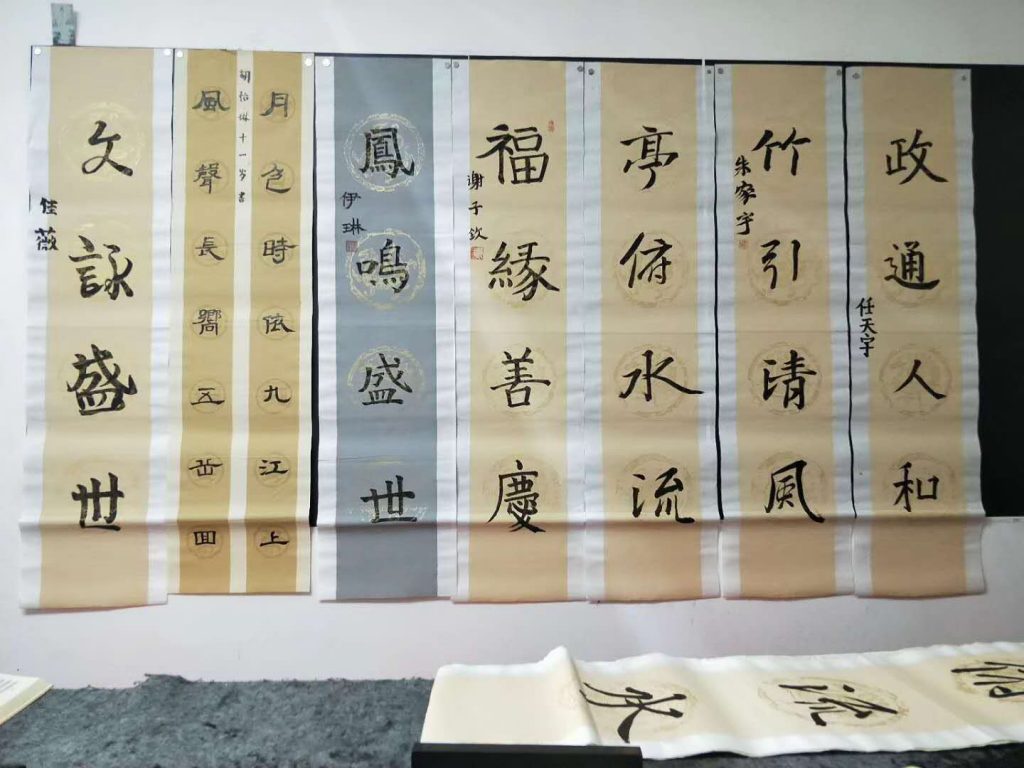 政通人和
任天宇
竹引清風
朱家宇
亭俯水流
福緣善慶
谢子
鳳鳴盛世
伊琳
月色時依九江上
風聲長嚮五岳回
胡怡琳十一岁書
文詠盛世
佳薇
水流